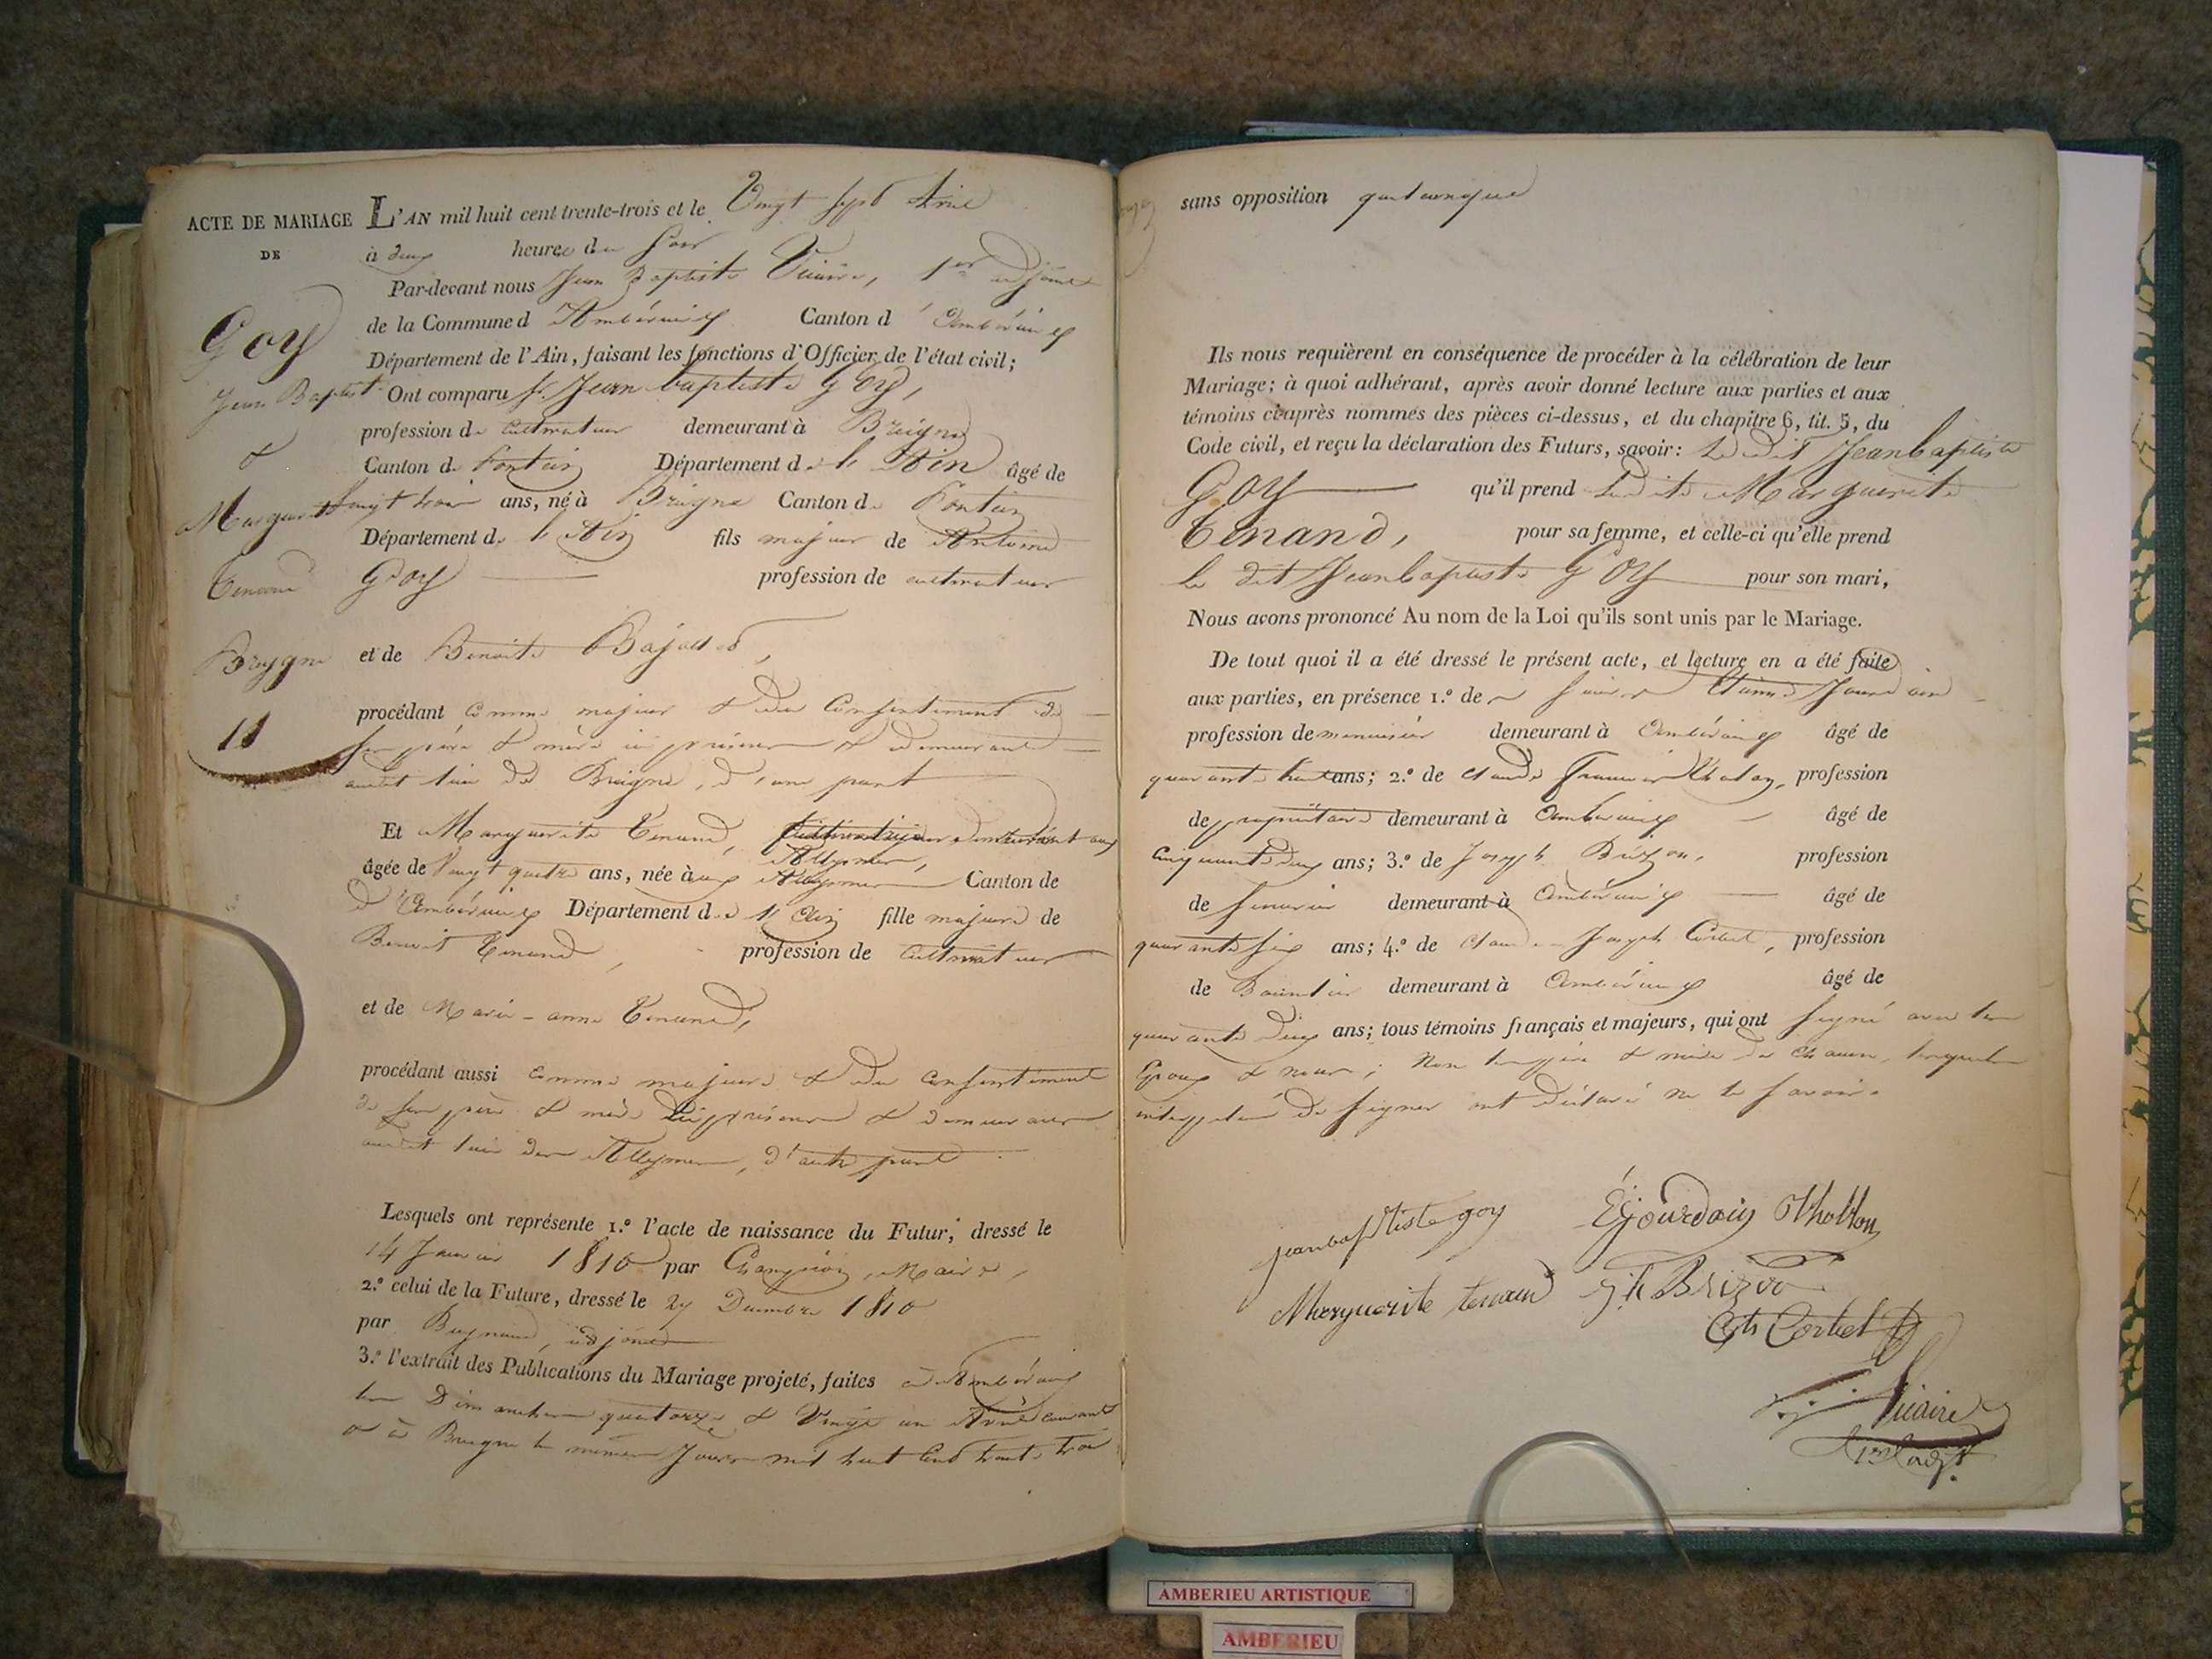 ACTE DE MARIAGE
DE
Goy
Jean Baptiste
&
Marguerite
Tenand
Breygne
11
L'AN mil huit cent trente-trois et le Vingt sept Avril
à deux heures du soir
Par-devant nous Jean Baptiste Vicaire, 1er adjoint
de la Commune d'Ambérieux Canton d'Ambérieux
Département de l'Ain, faisant les fonctions d'Officier de l'état civil;
Ont comparu sr. Jean baptiste Goy,
profession de cultivateur demeurant à Breigne
Canton de Département de l'Ain âgé de
Vingt trois ans, né à Breigne Canton de
Département de l'Ain fils majeur de Antoine
Goy profession de cultivateur
et de Benoite
procédant comme majeur & du Consentement de
ses père & mère ici présens & demeurant
audit lieu de Breigne, d'une part
Et Marguerite Tenand, demeurant aux
Allymes,
âgée de Vingt quatre ans, née aux Allymes Canton de
d'Ambérieux Département de l'Ain fille majeure de
Benoit Tenand, profession de Cultivateur
et de Marie-anne Tenand,
procédant aussi comme majeure & du consentement
de ses père & mère ici présens & demeurans
audit lieu des Allymes, d'autre part
Lesquels ont représente 1.º l'acte de naissance du Futur, dressé le
14 Janvier 1810 par Maire,
2.º celui de la Future, dressé le 27 Décembre 1810
par adjoint
3.º l'extrait des Publications du Mariage projeté, faites à Ambérieux
les Dimanches quatorze & Vingt un Avril courant
& à Breigne les mêmes Jours mil huit Cent trente trois
sans opposition quelconque
Ils nous requièrent en conséquence de procéder à la célébration de leur
Mariage; à quoi adhérant, après avoir donné lecture aux parties et aux
témoins ci-après nommés des pièces ci-dessus, et du chapitre 6, tit. 5, du
Code civil, et reçu la déclaration des Futurs, savoir: Le dit Jean baptiste
Goy qu'il prend Ladite Marguerite
Tenand, pour sa femme, et celle-ci qu'elle prend
le dit Jean baptiste Goy pour son mari,
Nous avons prononcé Au nom de la Loi qu'ils sont unis par le Mariage.
De tout quoi il a été dressé le présent acte, et lecture en a été faite
aux parties, en présence 1.º de Etienne Jourdain
profession de menuisier demeurant à Ambérieux âgé de
quarante huit ans; 2.º de Claude François profession
de propriétaire demeurant à Ambérieux âgé de
Cinquante deux ans; 3.º de Joseph Brizon, profession
de serrurier demeurant à Ambérieux âgé de
quarante six ans; 4.º de Claude Joseph Corbet, profession
de demeurant à Ambérieux âgé de
quarante deux ans; tous témoins français et majeurs, qui ont signé avec les
Epoux & nous; Non les père & mère de chacun, lesquels
interpelés de signer ont déclaré ne le savoir.
jean baptiste goy
E jourdain
Marguerite tenand
Brizon
Corbet
Vicaire
1er adjt.
AMBERIEU ARTISTIQUE
AMBERIEU